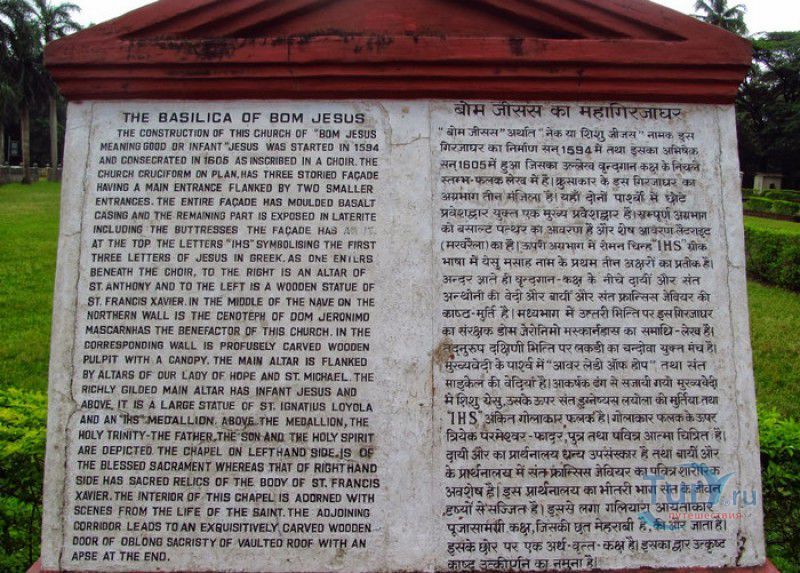 THE BASILICA OF BOM JESUS
THE CONSTRUCTION OF THIS CHURCH OF "BOM JESUS
MEANING GOOD OR INFANT" JESUS WAS STARTED IN 1594
AND CONSECRATED IN 1605 AS INSCRIBED IN A CHOIR. THE
CHURCH CRUCIFORM ON PLAN, HAS THREE STORIED FAÇADE
HAVING A MAIN ENTRANCE FLANKED BY TWO SMALLER
ENTRANCES. THE ENTIRE FAÇADE HAS MOULDED BASALT
CASING AND THE REMAINING PART IS EXPOSED IN LATERITE
INCLUDING THE BUTTRESSES THE FAÇADE HAS
AT THE TOP THE LETTERS "IHS" SYMBOLISING THE FIRST
THREE LETTERS OF JESUS IN GREEK. AS ONE ENTERS
BENEATH THE CHOIR, TO THE RIGHT IS AN ALTAR OF
ST. ANTHONY AND TO THE LEFT IS A WOODEN STATUE OF
ST. FRANCIS XAVIER. IN THE MIDDLE OF THE NAVE ON THE
NORTHERN WALL IS THE CENOTEPH OF DOM JERONIMO
MASCARNHAS THE BENEFACTOR OF THIS CHURCH. IN THE
CORRESPONDING WALL IS PROFUSELY CARVED WOODEN
PULPIT WITH A CANOPY. THE MAIN ALTAR IS FLANKED
BY ALTARS OF OUR LADY OF HOPE AND ST. MICHAEL. THE
RICHLY GILDED MAIN ALTAR HAS INFANT JESUS AND
ABOVE, IT IS A LARGE STATUE OF ST. IGNATIUS LOYOLA
AND AN "IHS" MEDALLION. ABOVE THE MEDALLION, THE
HOLY TRINITY-THE FATHER, THE SON AND THE HOLY SPIRIT
ARE DEPICTED. THE CHAPEL ON LEFTHAND SIDE, IS OF
THE BLESSED SACRAMENT WHEREAS THAT OF RIGHTHAND
SIDE HAS SACRED RELICS OF THE BODY OF ST. FRANCIS
XAVIER. THE INTERIOR OF THIS CHAPEL IS ADORNED WITH
SCENES FROM THE LIFE OF THE SAINT. THE ADJOINING
CORRIDOR LEADS TO AN EXQUISITIVELY CARVED WOODEN
DOOR OF OBLONG SACRISTY OF VAULTED ROOF WITH AN
APSE AT THE END.
बोम जीसस का महागिरजाघर
"बोम जीसस" अर्थात "नेक या शिशु जीजस" नामक इस
गिरजाघर का निर्माण सन् 1594 में तथा इसका अभिषेक
सन् 1605 में हुआ जिसका उल्लेख वृन्दगान कक्ष के निचले
स्तम्भ-फलक लेख में है। क्रुसाकार के इस गिरजाघर का
अग्रभाग तीन मंजिला है। यहाँ दोनों पार्श्वों में छोटे
प्रवेशद्वार युक्त एक मुख्य प्रवेशद्वार है। सम्पूर्ण अग्रभाग
को बसाल्ट पत्थर का आवरण है और शेष आवरण लेटराइट
का है। ऊपरी अग्रभाग में रोमन चिन्ह "IHS" ग्रीक
भाषा में येसु मसीह नाम के प्रथम तीन अक्षरों का प्रतीक है।
अन्दर आते ही वृन्दगान-कक्ष के नीचे दायीं ओर संत
अन्थोनी की वेदी और बायीं ओर संत फ्रान्सिस जेवियर की
काष्ठ-मूर्ति है। मध्यभाग में उत्तरी भित्ति पर इस गिरजाघर
का संरक्षक डोम जैरोनिमो मस्कार्नहास का समाधि-लेख है।
तदनुरुप दक्षिणी भित्ति पर लकडी का चन्दोवा युक्त मंच है।
मुख्यवेदी के पार्श्व में "आवर लेडी ऑफ होप" तथा संत
माइकेल की वेदियाँ है। आकर्षक ढंग से सजायी गयी मुख्यवेदी
में शिशु येसु, उसके ऊपर संत इग्नेष्यस लयोला की मुर्ति तथा
"IHS" अंकित गोलाकार फलक है। गोलाकार फलक के ऊपर
त्रियेक परमेश्वर-फादर, पुत्र तथा पवित्र आत्मा चित्रित है।
दायीं ओर का प्रार्थनालय धन्य उपसंस्कार है तथा बायीं ओर
के प्रार्थनालय में संत फ्रान्सिस जेवियर का पवित्र शारीरिक
अवशेष है। इस प्रार्थनालय का भीतरी भाग संत के जीवन
दृष्यों से सज्जित है। इससे लगा गलियारा आयताकार
पूजासामग्री कक्ष, जिसकी छत मेहराबी है, की ओर जाता है।
इसके छोर पर एक अर्ध-वृत्त-कक्ष है। इसका द्वार उत्कृष्ट
काष्ठ उत्कीर्णन का नमूना है।
Tury.ru
путешествия